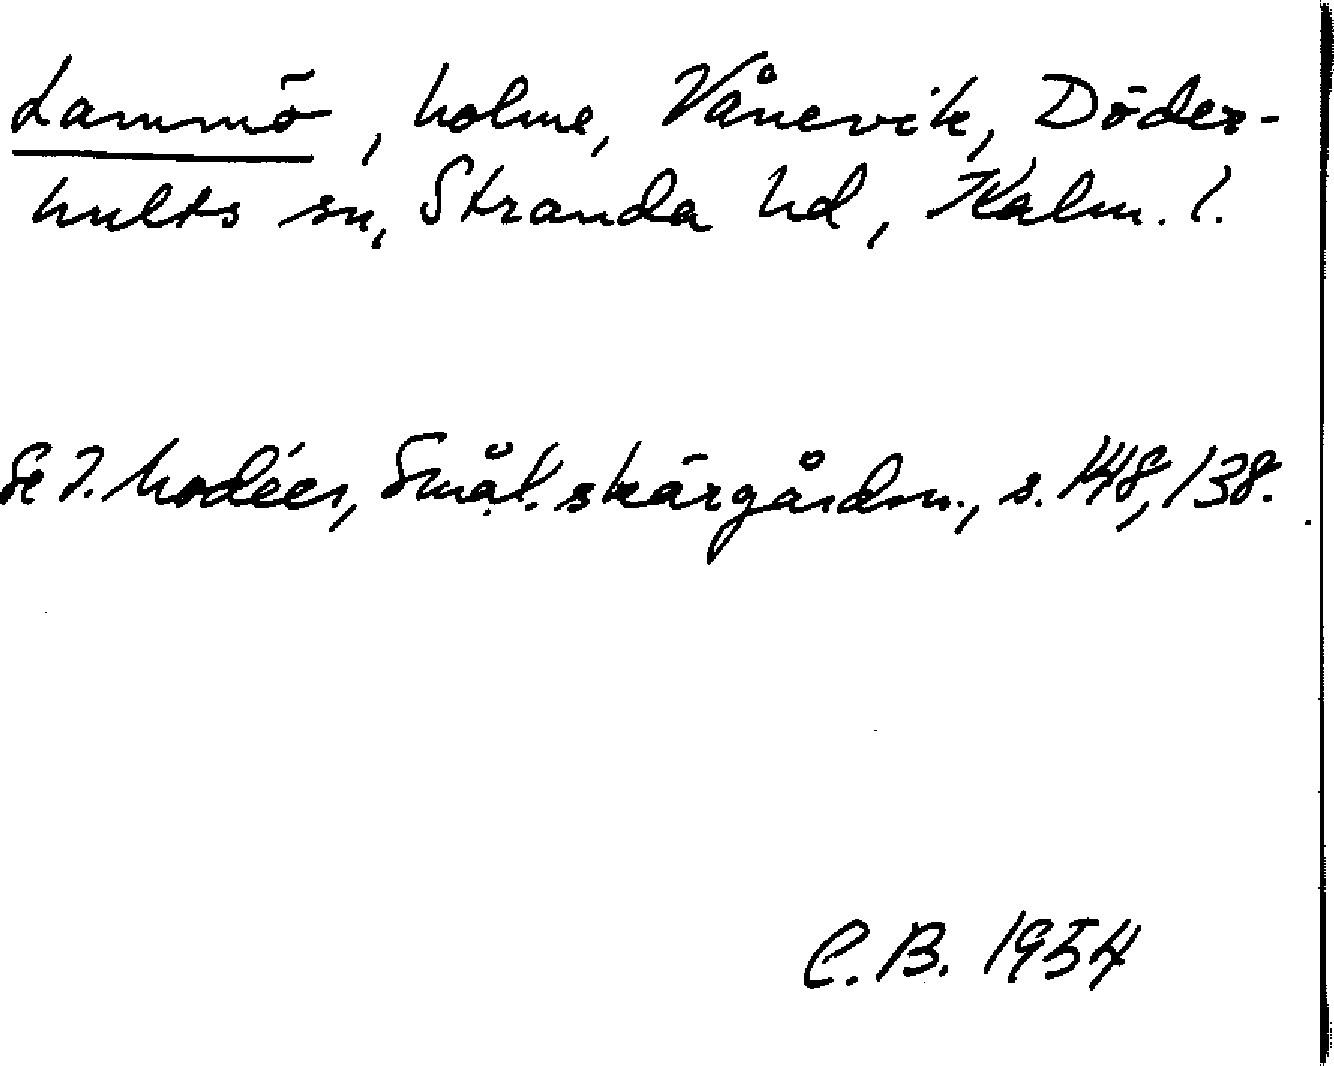 Lammö, holme, Vånevik, Döder-
hults sn, Stranda hd, Kalm. l.
Se I. Modéer, Smål. skärgårdsn., s. 148, 138.
C.B. 1954